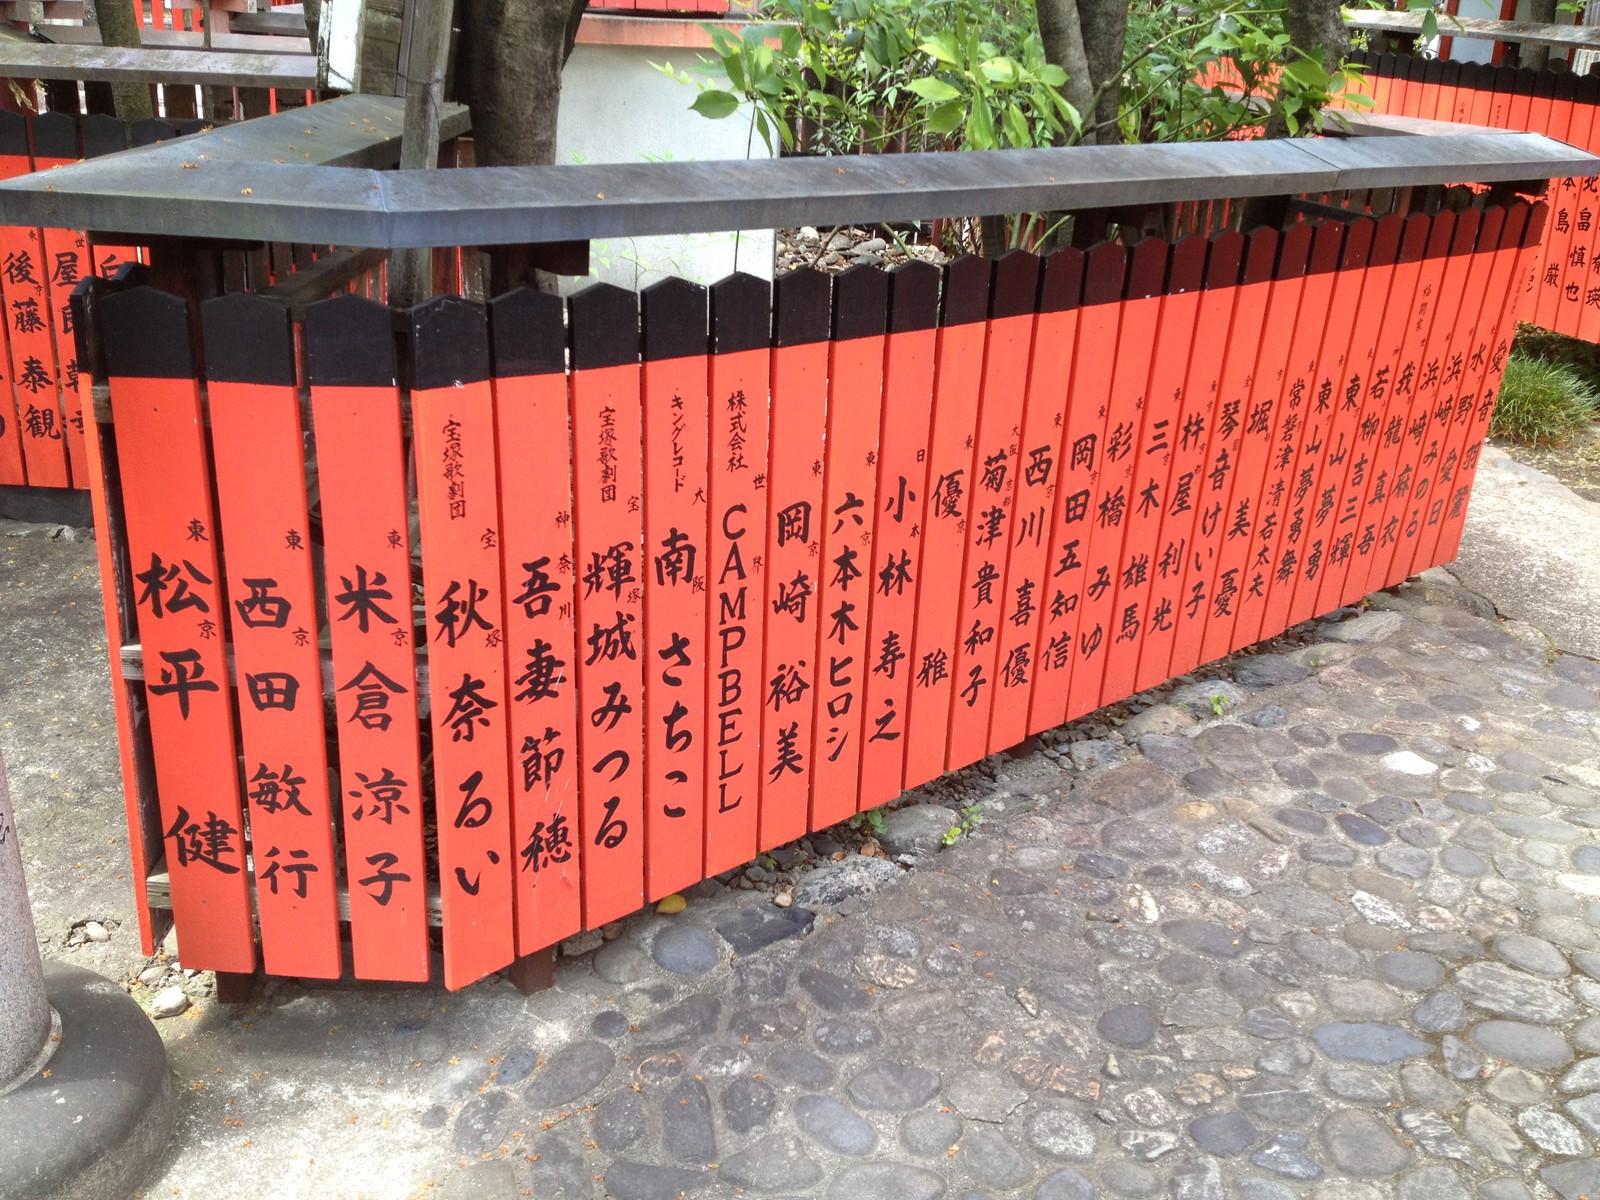 東京
松平 健
東京
西田 敏行
東京
米倉 涼子
宝塚歌劇団
宝塚
秋奈るい
神奈川
吾妻 節穂
宝塚歌劇団
宝塚
輝城みつる
キングレコード
大阪
南 さちこ
株式会社
世界
CAMPBELL
東京
岡崎 裕美
東京
六本木ヒロシ
日本
小林 寿之
東京
優 雅
大阪
菊津貴和子
東京
西川 喜優
東京
岡田五知信
東京
彩橋みゆ
東京
三木 雄馬
東京
杵屋利光
琴音けい子
堀 美憂
常磐津清若太夫
東山夢勇舞
東山 夢勇
若柳吉三輝
我龍 真吾
浜崎 麻衣
浜崎みのる
水野 愛日
愛音羽麗
後藤 泰観
島 巌
畠 慎也